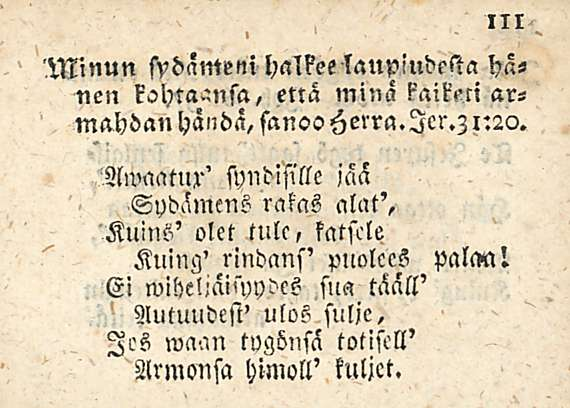 III
Minun sydämeni halkee laupiudesta hä⸗
nen kohtaansa, että minä kaiketi ar⸗
mahdan händä, sanoo Herra. Jer. 31:20.
Awaatux' syndisille jää
Sydämens rakas alat',
Kuins' olet tule, katsele
Kuing' rindans' puolees palaa!
Ei wiheljäisyydes sua tääll'
Autuudest' ulos sulje,
Jos waan tygönsä totisell'
Armonsa himoll' kuljet.